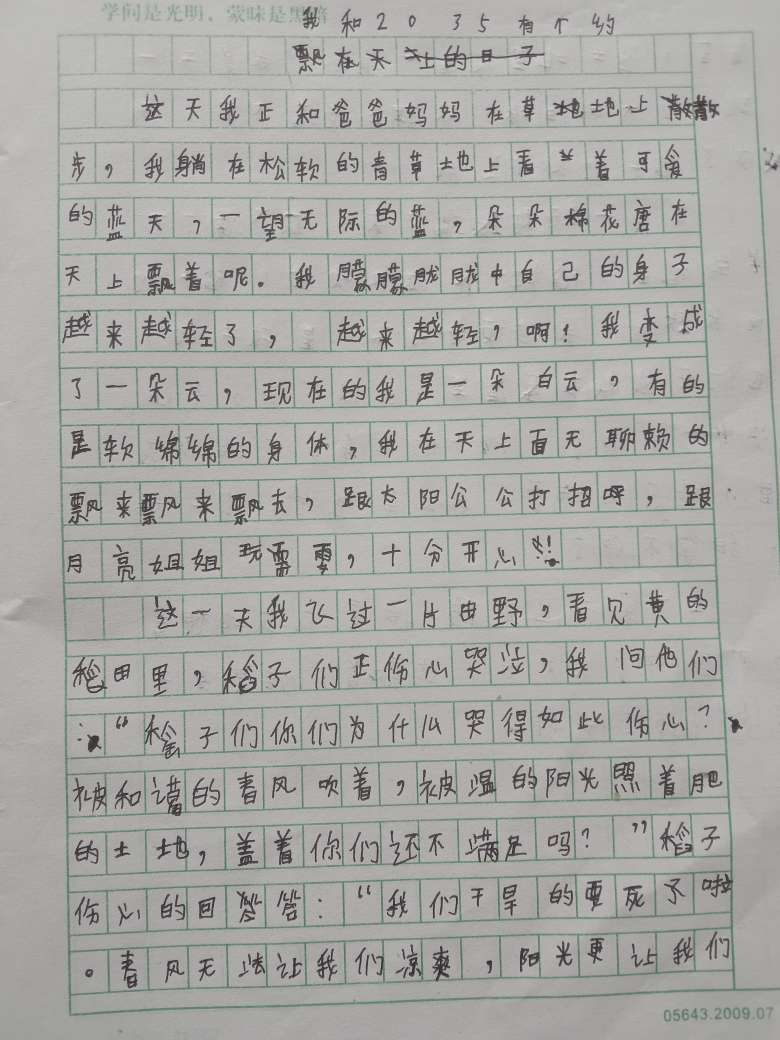 学问是光明，蒙昧是黑暗
我和2035有个约
飘在天上的日子
这天我正和爸爸妈妈在草地地上散散
步，我躺在松软的青草地上看着可爱
的蓝天，一望无际的蓝，朵朵棉花唐在
天上飘着呢。我朦朦胧胧中自己的身子
越来越轻了，越来越轻，啊！我变成
了一朵云，现在的我是一朵白云，有的
是软绵绵的身体，我在天上面无聊赖的
飘来飘风来飘去，跟太阳公公打招呼，跟
月亮姐姐玩需要，十分开心！！
这一天我飞过一片田野，看见黄的
稻田里，稻子们正伤心哭泣，我问他们
：“稻子们你们为什么哭得如此伤心？
被和蔼的春风吹着，被温的阳光照着肥
的土地，盖着你们还不满足吗？”稻子
伤心的回答答：“我们干旱的要死了啦
。春风无法让我们凉爽，阳光更让我们
05643.2009.07